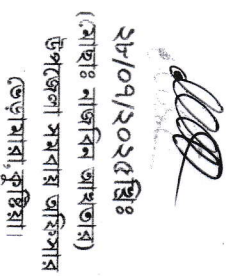 ২৮/০৭/২০২৫খ্রিঃ
(মোছাঃ নাজনিন আখতার)
উপজেলা সমবায় অফিসার
ভেড়ামারা, কুষ্টিয়া।